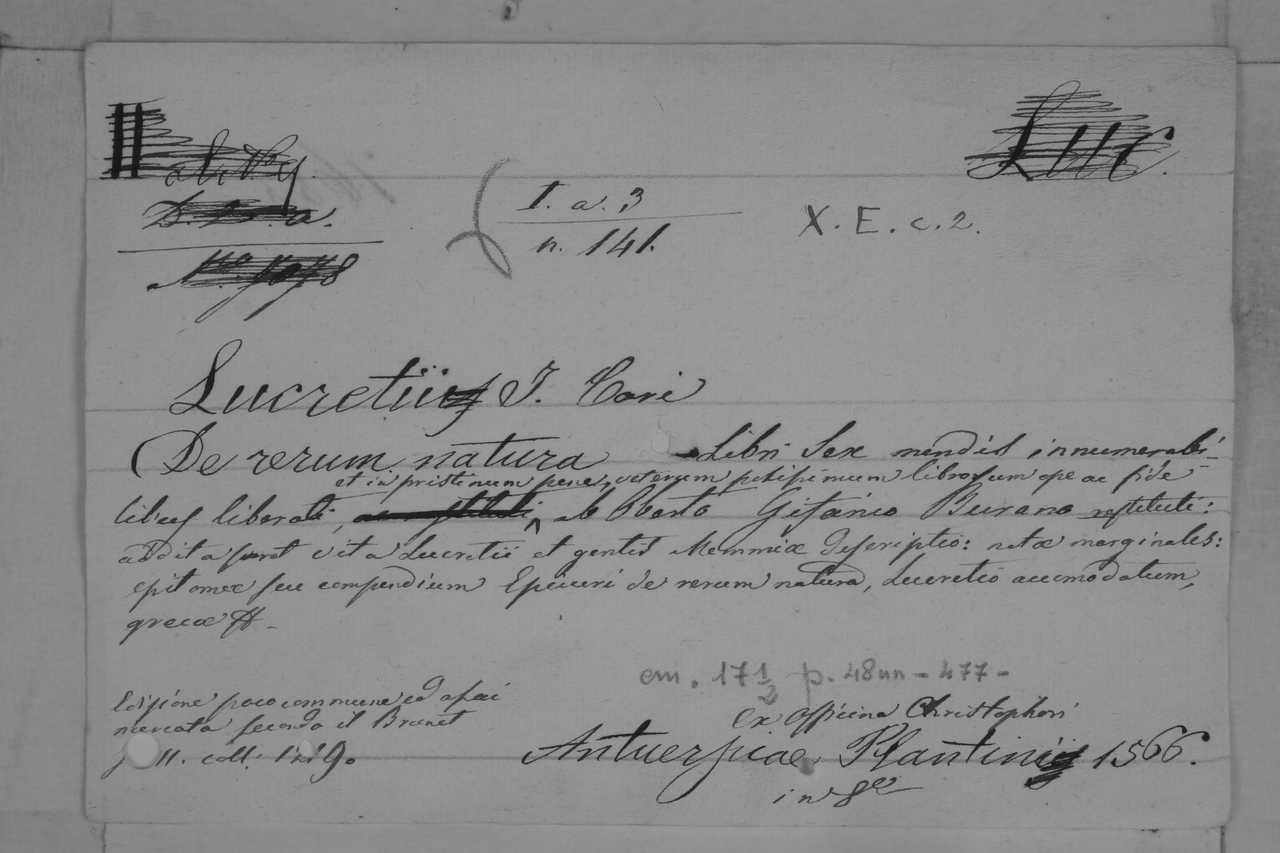 Luc.
I. a. 3
n. 141.
X. E. c. 2.
Lucretii T. Cari
De rerum natura Libri Sex mendis innumerabi-
et in pristinum pene, veterum potissimum librorum ope ac fide
libus liberati, ab Oberto Gifanio Burano restituti:
addita sunt vita Lucretii et gentis Memmiæ Descriptio: notæ marginales:
epitomæ seu compendium Epicuri de rerum natura, Lucretio accomodatum,
grecæ
Edizione poco commune ed assai
mercata secondo il Brunet
coll:
cm. 17 1/2 p. 48nn - 477 -
ex officina Christophori
Antuerpiae, Plantini 1566.
in 8º